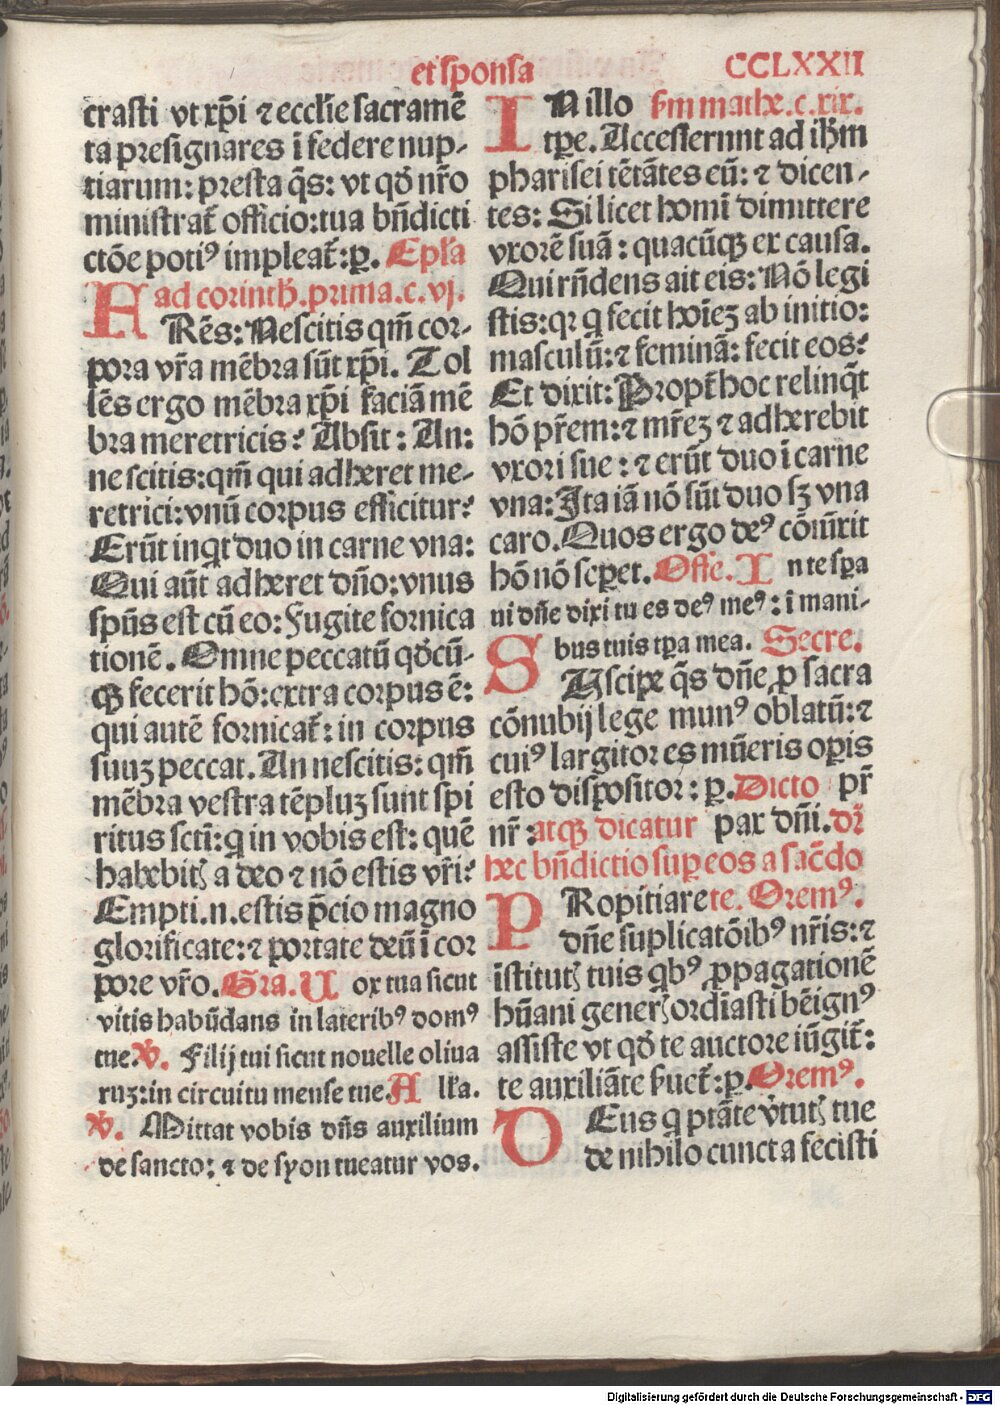 et sponsa
CCLXXII
crasti vt xp̄i ⁊ ecclīe sacramē
ta presignares ī federe nup-
tiarum: presta q̄s: vt qđ nr̄o
ministrat̄ officio: tua bn̄dicti
ctōe potiꝰ impleat̄: ꝑ. Epl̄a
ad corinth̄. prima. c. vj.
FRēs: Nescitis qm̄ cor-
pora vr̄a mēbra sūt xp̄i. Tol
lēs ergo mēbra xp̄i faciā mē
bra meretricis? Absit: An:
ne scitis: qm̄ qui adheret me-
retrici: vnū corpus efficitur?
Erūt inqͥt duo in carne vna:
Qui aūt adheret dn̄o: vnus
sp̄us est cū eo: Fugite fornica
tionē. Omne peccatū qđcū-
qꝫ fecerit hō: extra corpus ē:
qui autē fornicat̄: in corpus
suuꝫ peccat. An nescitis: qm̄
mēbra vestra tēpluꝫ sunt spi
ritus sct̄i: qͥ in vobis est: quē
habebitꝭ a deo ⁊ nō estis vr̄i?
Empti. n. estis p̄cio magno
glorificate: ⁊ portate deū ī cor
pore vr̄o. Gra. Uox tua sicut
vitis habūdans in lateribꝰ domꝰ
tue. ℣. Filij tui sicut nouelle oliua
ruꝫ: in circuitu mense tue. Alĺa.
℣. Mittat vobis dn̄s auxilium
de sancto: ⁊ de syon tueatur vos.
IN illo fm mathe. c. xix.
tꝑe. Accesserunt ad ih̄m
pharisei tētātes eū: ⁊ dicen-
tes: Si licet homī dimittere
vxorē suā: quacūqꝫ ex causa.
Qui rn̄dens ait eis: Nō legi
stis: qꝛ qͥ fecit hoīeꝫ ab initio:
masculū: ⁊ feminā: fecit eos?
Et dixit: Propt̄ hoc relinqͥt
hō pr̄em: ⁊ mr̄eꝫ ⁊ adherebit
vxori sue: ⁊ erūt duo ī carne
vna: Ita iā nō sūt duo sꝫ vna
caro. Quos ergo deꝰ cōiūxit
hō nō seꝑet. Offe. In te sꝑa
ui dn̄e dixi tu es deꝰ meꝰ: ī mani-
bus tuis tꝑa mea. Secre.
SUscipe q̄s dn̄e ꝓ sacra
cōnubij lege munꝰ oblatū: ⁊
cuiꝰ largitor es mūeris oꝑis
esto dispositor: ꝑ. Dicto pr̄
nr̄: atqꝫ dicatur pax dn̄i. dr̄
hec bn̄dictio suꝑ eos a sac̄do
PRopitiare te. Oremꝰ.
dn̄e suplicatōibꝰ nr̄is: ⁊
īstitutꝭ tuis qͥbꝰ ꝓpagationē
hūani generꝭ ordīasti bēignꝰ
assiste vt qđ te auctore iūgit̄:
te auxiliāte ſuet̄: ꝑ. Oremꝰ.
DEus qͥ ptāte v̄tutꝭ tue
de nihilo cuncta fecisti
Digitalisierung gefördert durch die Deutsche Forschungsgemeinschaft - DFG